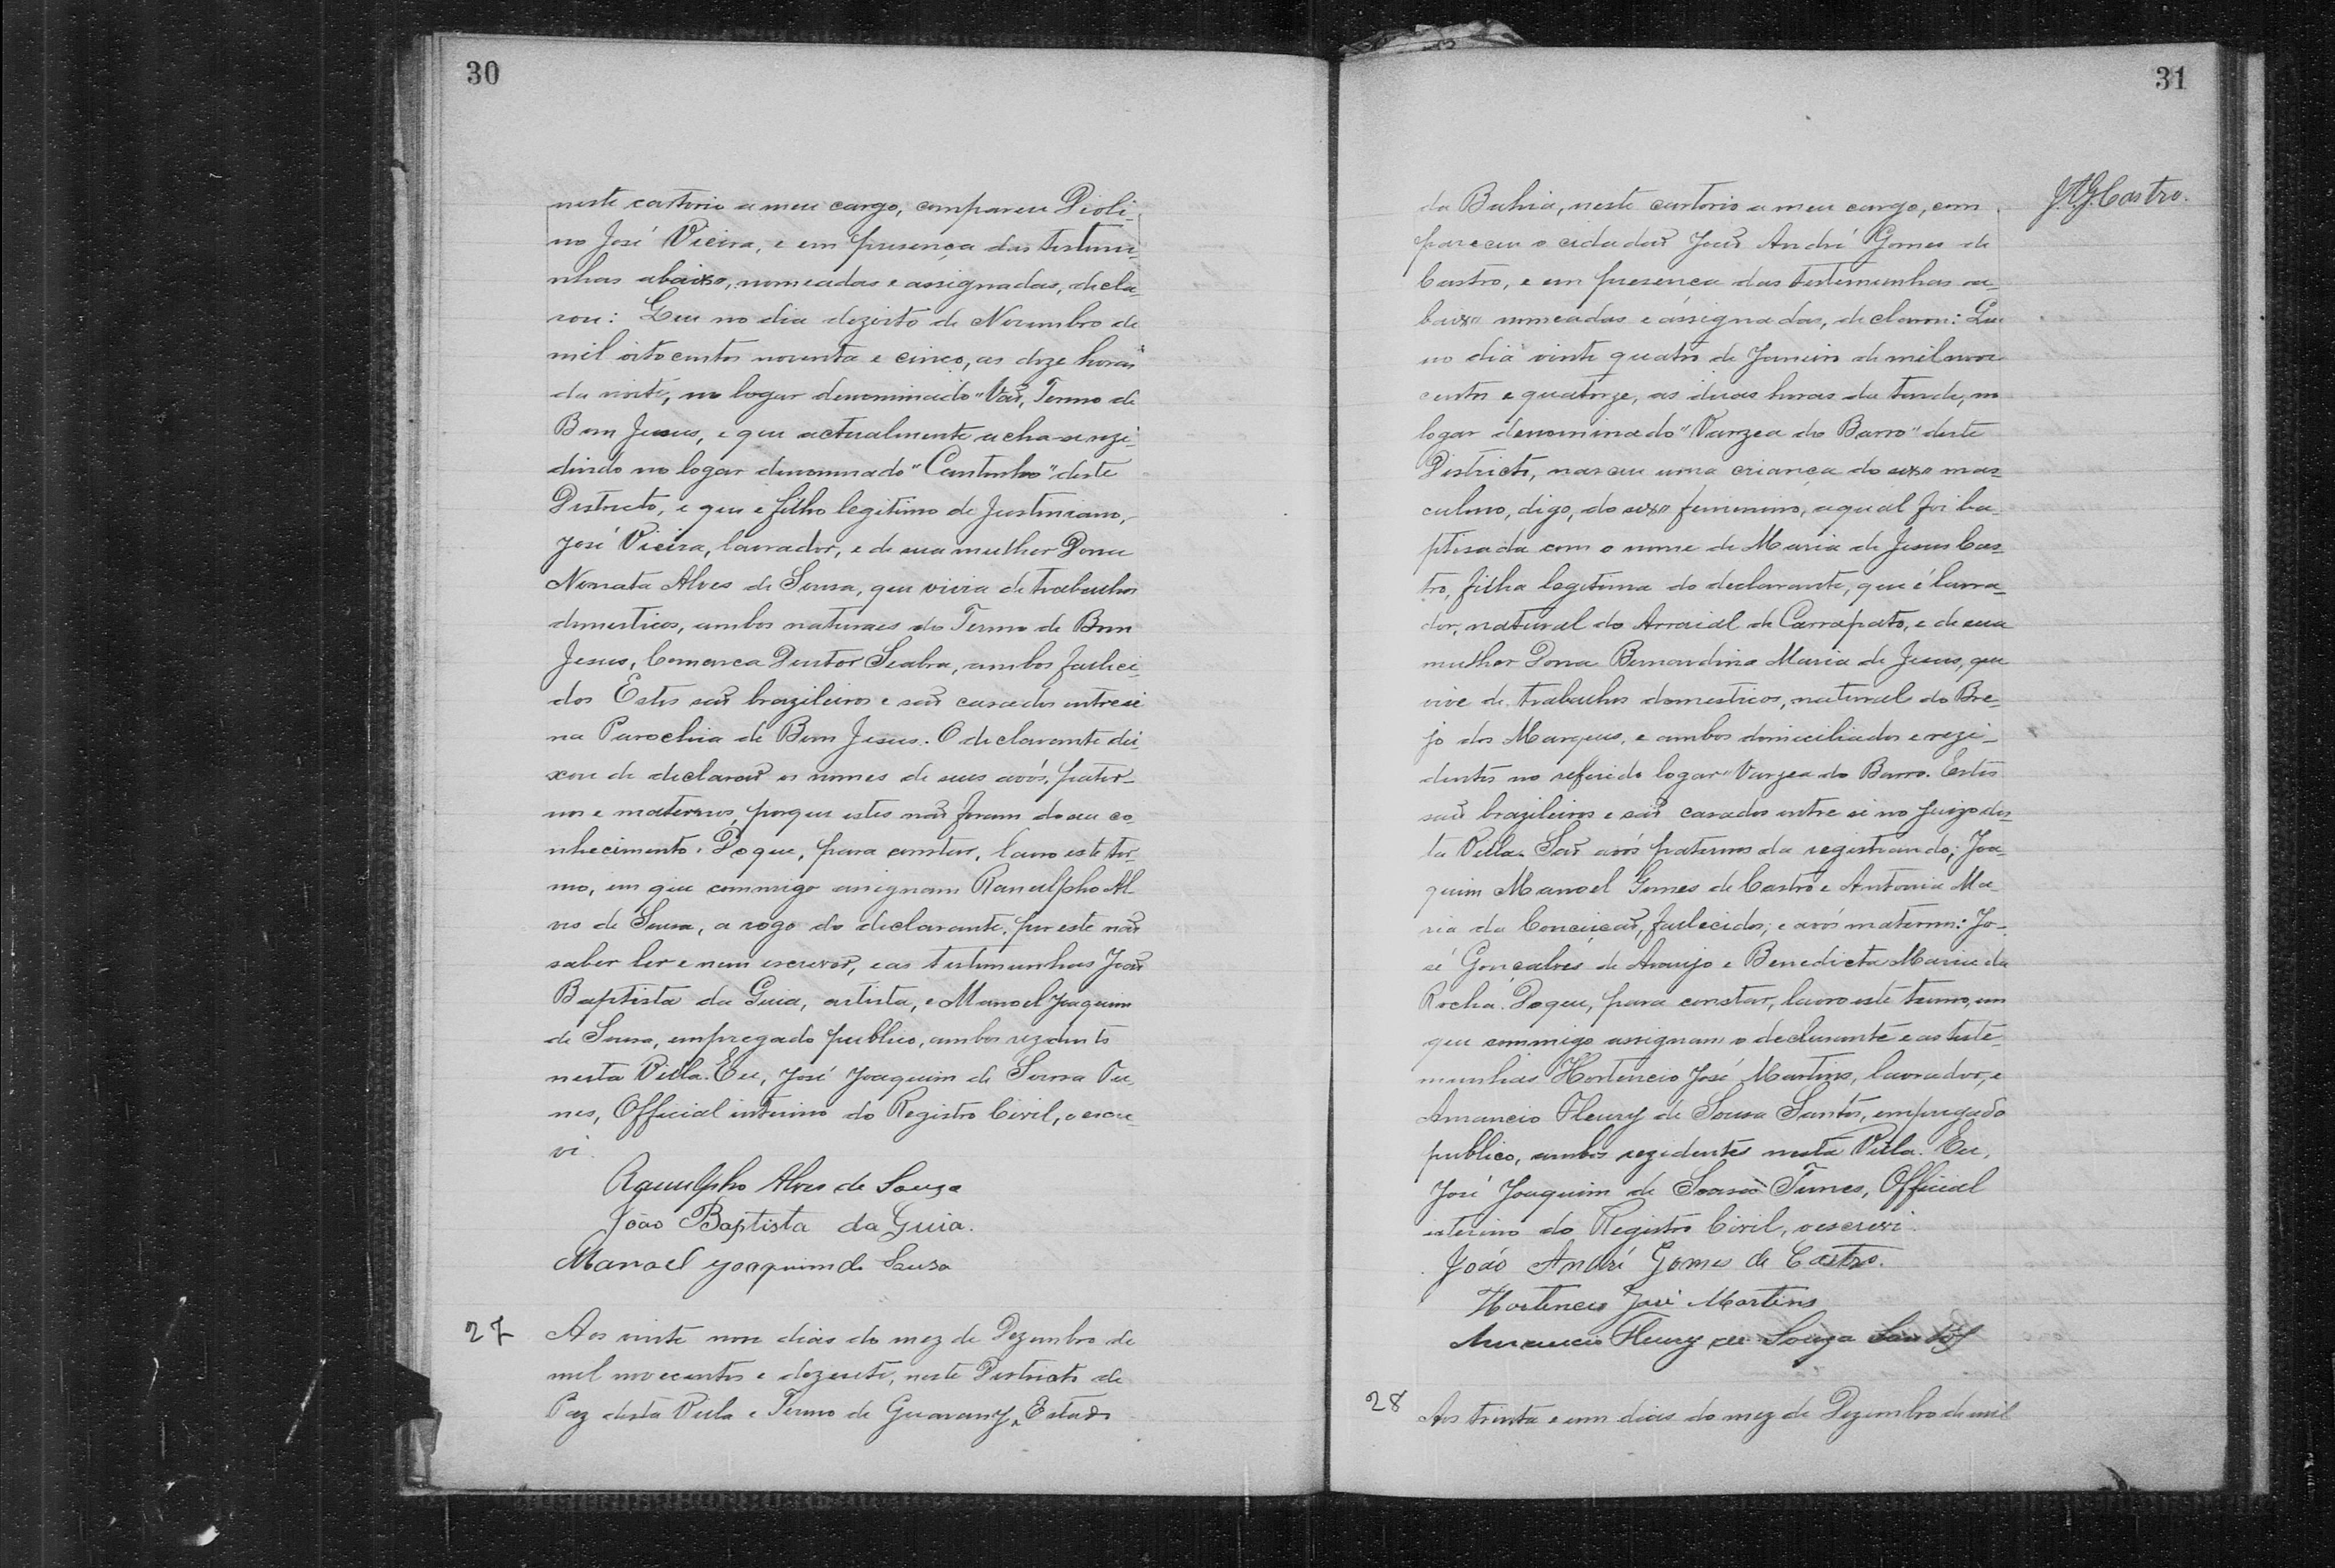 30
neste cartorio a meu cargo, compareu Dioli-
no José Vieira, e em presença das testimu-
nhas abaixo, nomeadas e assignadas, decla-
rou: Que no dia dezoito de Novembro de
mil oitocentos noventa e cinco, as doze horas
da noite, no logar denominado "Vaõ, Termo de
Bom Jesus, e que actualmente acha-se rezi-
dindo no logar denominado "Cantinho" deste
Districto, e que e filho legitimo de Justiniano,
José Vieira, lavrador, e de sua mulher Dona
Alves de Sousa, que vivia de trabalhos
domesticos, ambos naturaes do Termo de Bom
Jesus, Comarca Doutor Seabra, ambos fallici-
dos Estes saõ brazileiros e saõ casados entre si
na Parochia de Bom Jesus. O declarante dei-
xou de declarar os nomes de seus avós, pater-
nos e maternos, porque estes naõ foram do seu co-
nhecimento. Do que, para constar, lavro este ter-
mo, em que commigo assignam Ranulpho Al-
ves de Sousa, a rogo do declarante, por este naõ
saber ler e nem escrever, e as testimunhas Joaõ
Baptista da Guia, artista, e Manoel Joaquim
de Sousa, empregado publico, ambos rezidents
nesta Villa. Eu, José Joaquim de Sousa Tu-
nes, Official interino do Registro Civil, o escre-
vi.
Ranulpho Alves de Souza
João Baptista da Guia.
Manoel Joaquim de Sousa
27 Aos vinte nove dias do mez de Dezembro de
mil novecentos e dezesete, neste Districto de
Paz desta Villa e Termo de Guarany, Estado
31
J.A.G.Castro.
da Bahia, neste cartorio a meu cargo, com-
pareceu o cidadaõ Joaõ André Gomes de
Castro, e em presença das testemunhas a-
baixo nomeadas e assignadas, declarou: Que
no dia vinte quatro de Janeiro de mil nove
centos e quatorze, as duas horas da tarde, no
logar denominado "Varzea do Barro" deste
Districto, nasceu uma criança do sexo mas-
culino, digo, do sexo feminino, a qual foi ba-
ptisada com o nome de Maria de Jesus Cas-
tro, filha legitima do declarante, que é lavra-
dor, natural do Arraial de Carrapato, e de sua
mulher Dona Bernardina Maria de Jesus, que
vive de trabalhos domesticos, natural do Bre-
jo dos Marques, e ambos domiciliados e rezi-
dentes no referido logar "Varzea do Barro. Estes
saõ brazileiros e saõ casados entre si no Juizo des-
ta Villa. Saõ avós paternos da registrando; Joa-
quim Manoel Gomes de Castro e Antonia Ma-
ria da Conceiçaõ, fallecidos; e avós maternos: Jo-
sé Gonçalves de Araujo e Benedicta Maria da
Rocha. Do que, para constar, lavro este termo, em
que commigo assignam o declarante e as teste-
munhas Hortencio José Martins, lavrador, e
Amancio Fleury de Sousa Santos, empregado
publico, ambos rezidentes nesta Villa. Eu,
José Joaquim de Sousa Tunes, Official
interino do Registro Civil, o escrevi.
João André Gomes de Castro.
Hortencio José Martins
Amancio Fleury de Souza Santos
28 Aos trinta e um dias do mez de Dezembro de mil